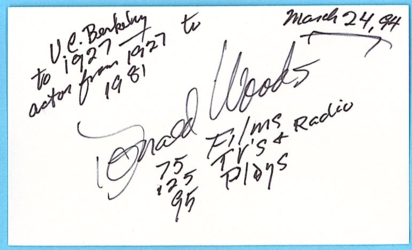 to U.C. Berkeley
to 1927
actor from 1927 to
1981
March 24, 94
Donald Woods
75 Films
125 TV's & Radio
95 Plays